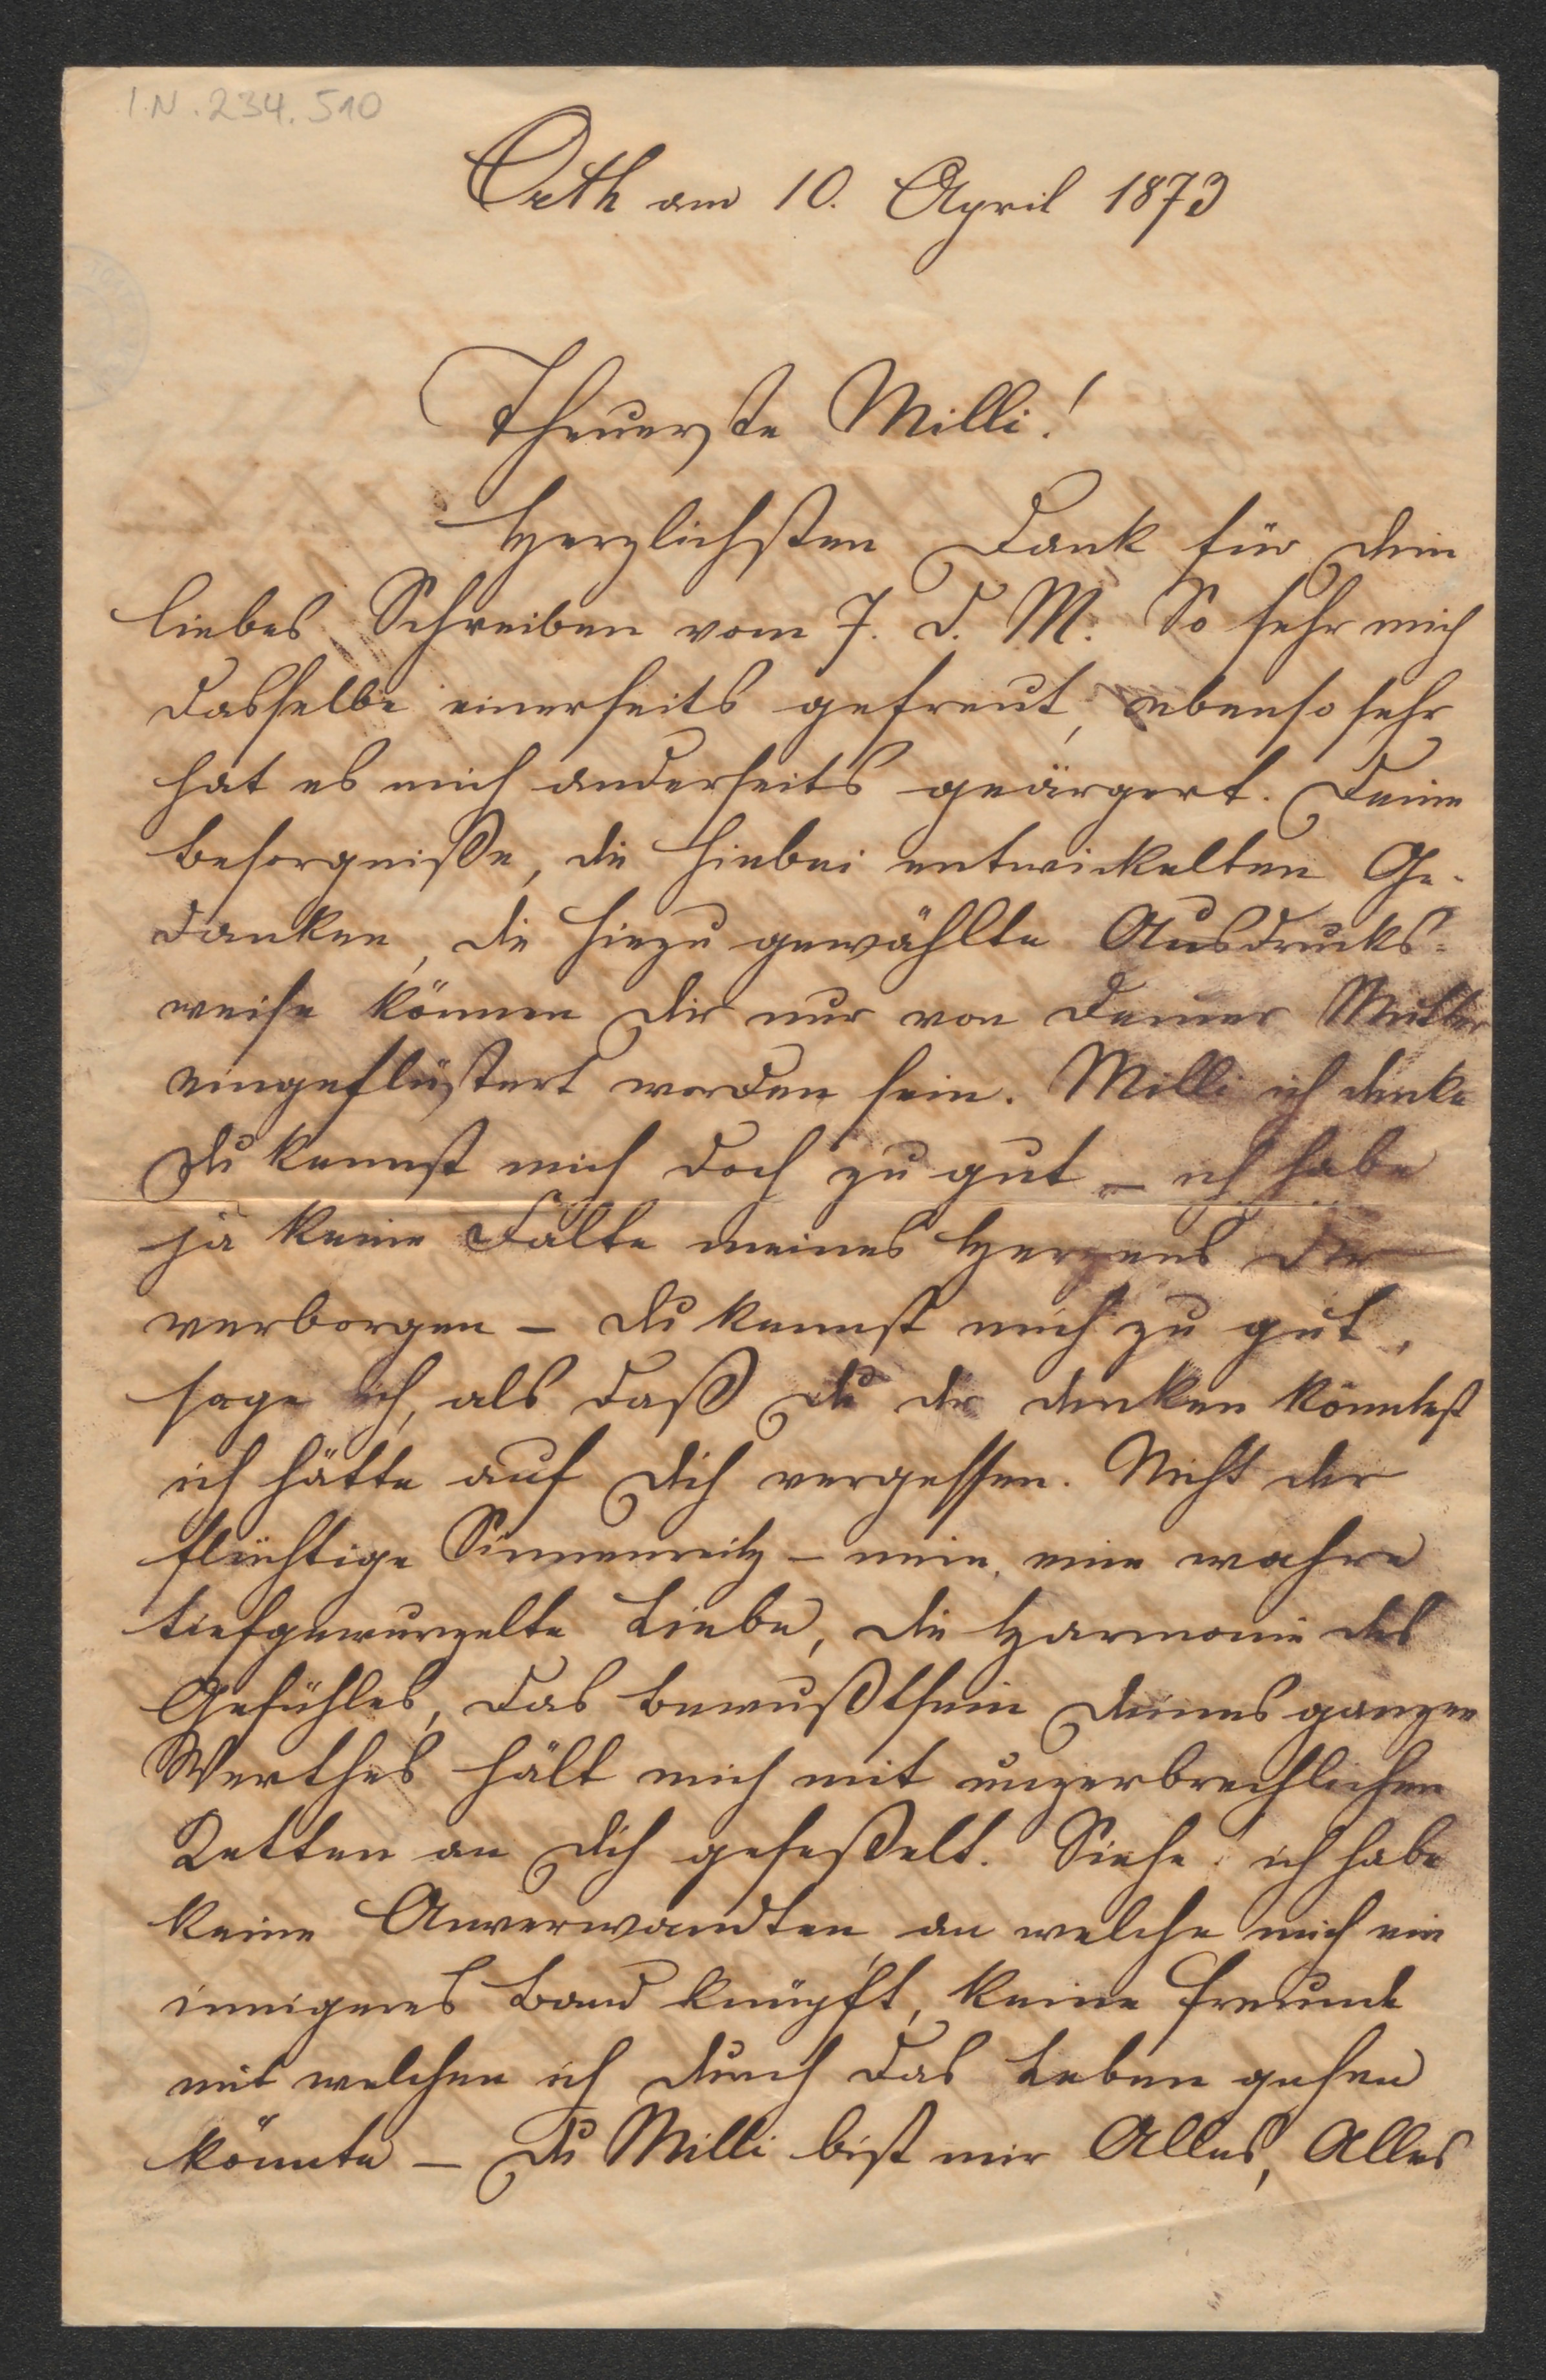 I.N. 234.510
Orth am 10. April 1873
Theuerste Milli!
Herzlichsten Dank für dein
liebes Schreiben vom 7. d. M. So sehr mich
dasselbe einerseits gefreut, ebenso sehr
hat es mich anderseits geärgert. Deine
Besorgniße, die hiebei entwickelten Ge-
danken, die hiezu gewählte Ausdrucks-
weise können dir nur von deiner Mutter
eingeflüstert worden sein. Milli ich denke
Du kennst mich doch zu gut – ich habe
ja keine Falte meines Herzens dir
verborgen – du kennst mich zu gut,
sage ich, als daß du dir denken könntest
ich hätte auf Dich vergessen. Nicht der
flüchtige Sinnenreitz – nein, eine wahre
tiefgewurzelte Liebe, die Harmonie des
Gefühles, das Bewußtsein Deines ganzen
Werthes hält mich mit unzerbrechlichen
Ketten an Dich gefeßelt. Siehe ich habe
keine Anverwandten an welche mich ein
innigeres Band knüpft, keine Freunde
mit welchen ich durch das Leben gehen
könnte – Du Milli bist mir Alles, Alles